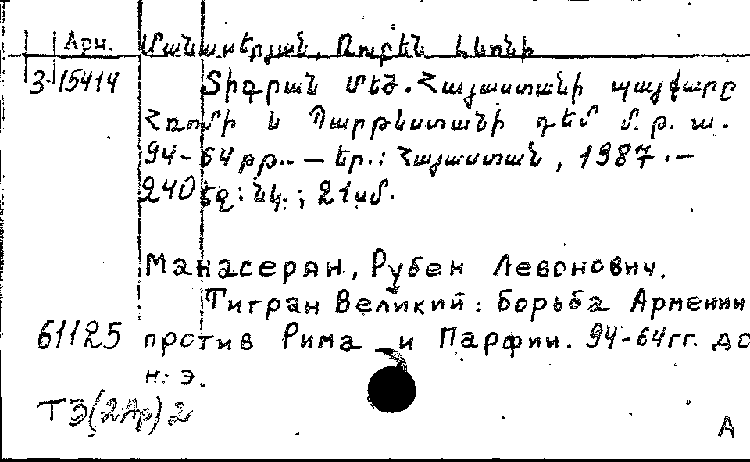 Арм. Մանասերյան, Ռուբեն Լևոնի
3-15414 Տիգրան Մեծ. Հայաստանի պայքարը
Հռոմի և Պարթևստանի դեմ մ.թ.ա.
94-64 թթ.. — Եր.: Հայաստան, 1987.—
240 էջ: նկ.; 21սմ.
Манасерян, Рубен Левонович.
Тигран Великий: борьба Армении
61125 против Рима и Парфии. 94-64гг. до
н.э.
Т3(2Ар)2
А